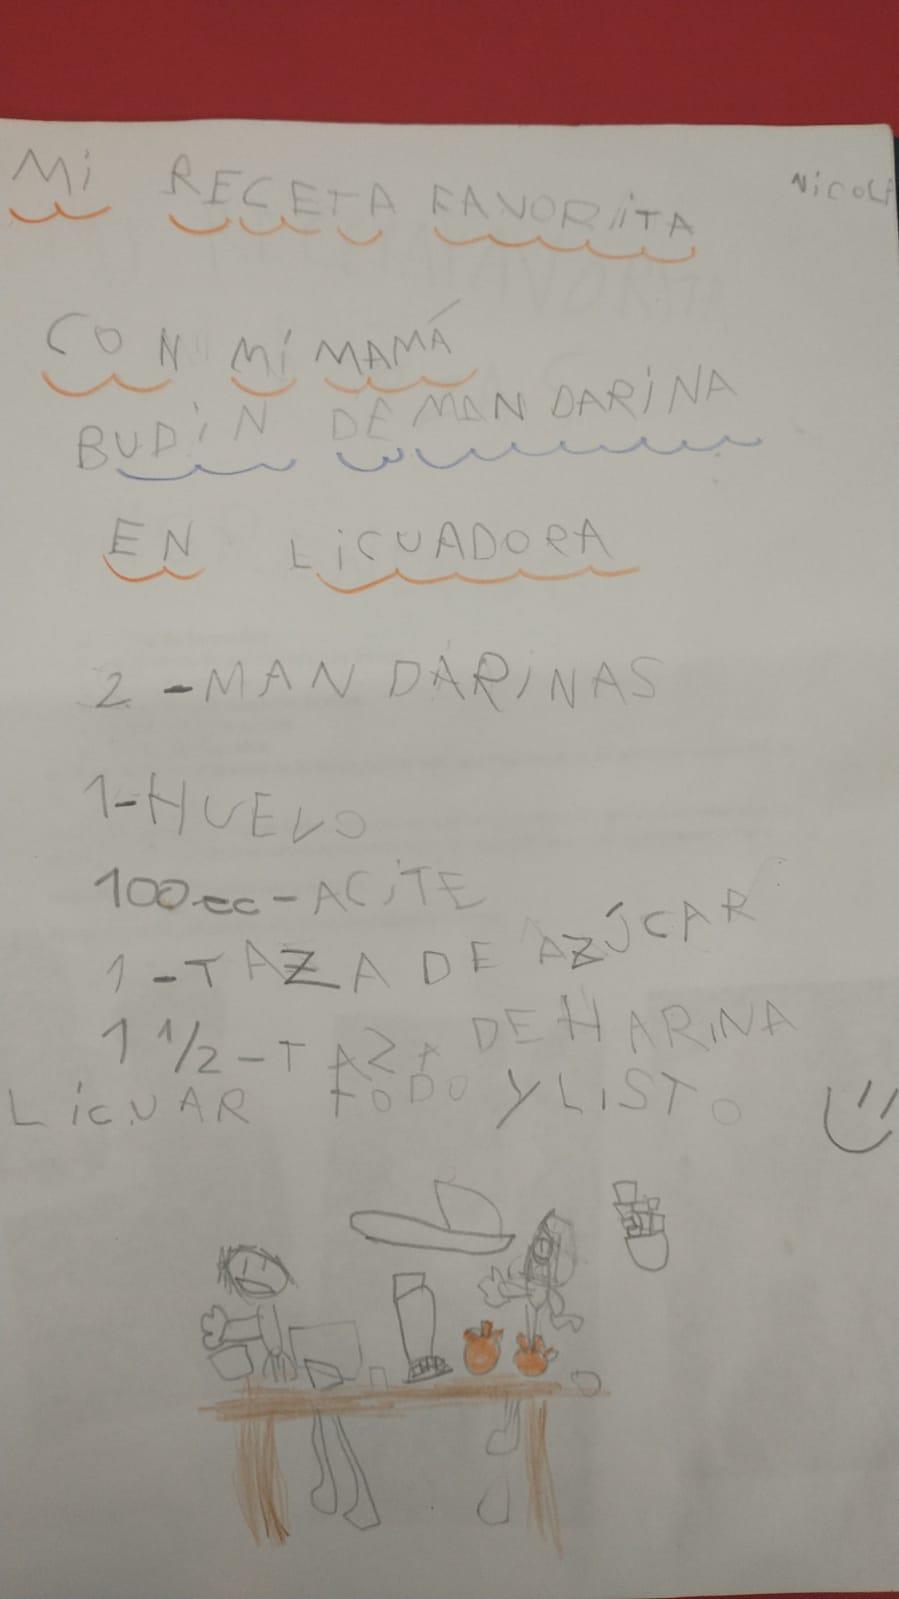 MI RECETA FAVORIITA
NICOLA
CON MI MAMÁ
BUDIN DE MANDARINA
EN LICUADORA
2-MANDARINAS
1-HUEVO
100cc-ACITE
1-TAZA DE AZÚCAR
1 1/2-TAZA DE HARINA
LICUAR TODO Y LISTO